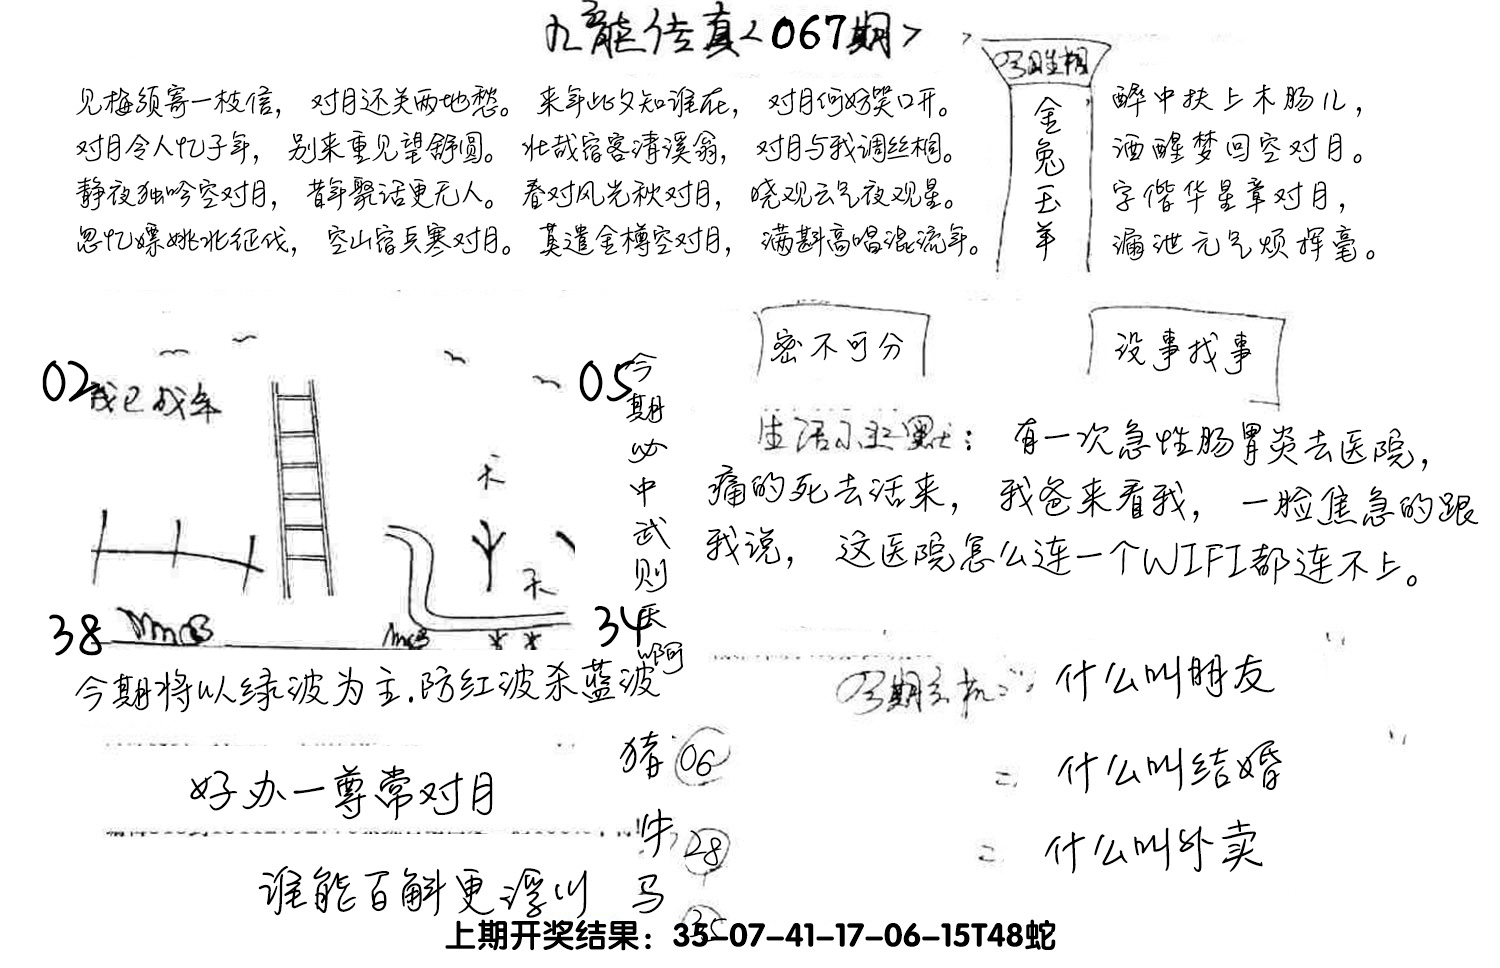 九龙传真<067期>
见梅须寄一枝信，对月还关两地愁。来年此夕知谁在，对月何妨笑口开。
对月令人忆子年，别来重见望舒圆。壮哉宿客清溪翁，对月与我调丝桐。
静夜独吟空对月，昔年聚话更无人。春对风光秋对月，晓观云气夜观星。
忽忆嫖姚北征伐，空山宿兵寒对月。莫遣金樽空对月，满斟高唱混流年。
金兔玉羊
醉中扶上木肠儿，
酒醒梦回空对月。
字偕华星章对月，
漏泄元气烦挥毫。
密不可分
没事找事
02
05
38
34
今期必中武则天啊
有一次急性肠胃炎去医院，
痛的死去活来，我爸来看我，一脸焦急的跟
我说，这医院怎么连一个WIFI都连不上。
今期将以绿波为主.防红波杀蓝波
好办一尊常对月
谁能百斛更浮川
猪 06
牛 28
马 35
今期玄机
什么叫朋友
什么叫结婚
什么叫外卖
上期开奖结果：35-07-41-17-06-15T48蛇